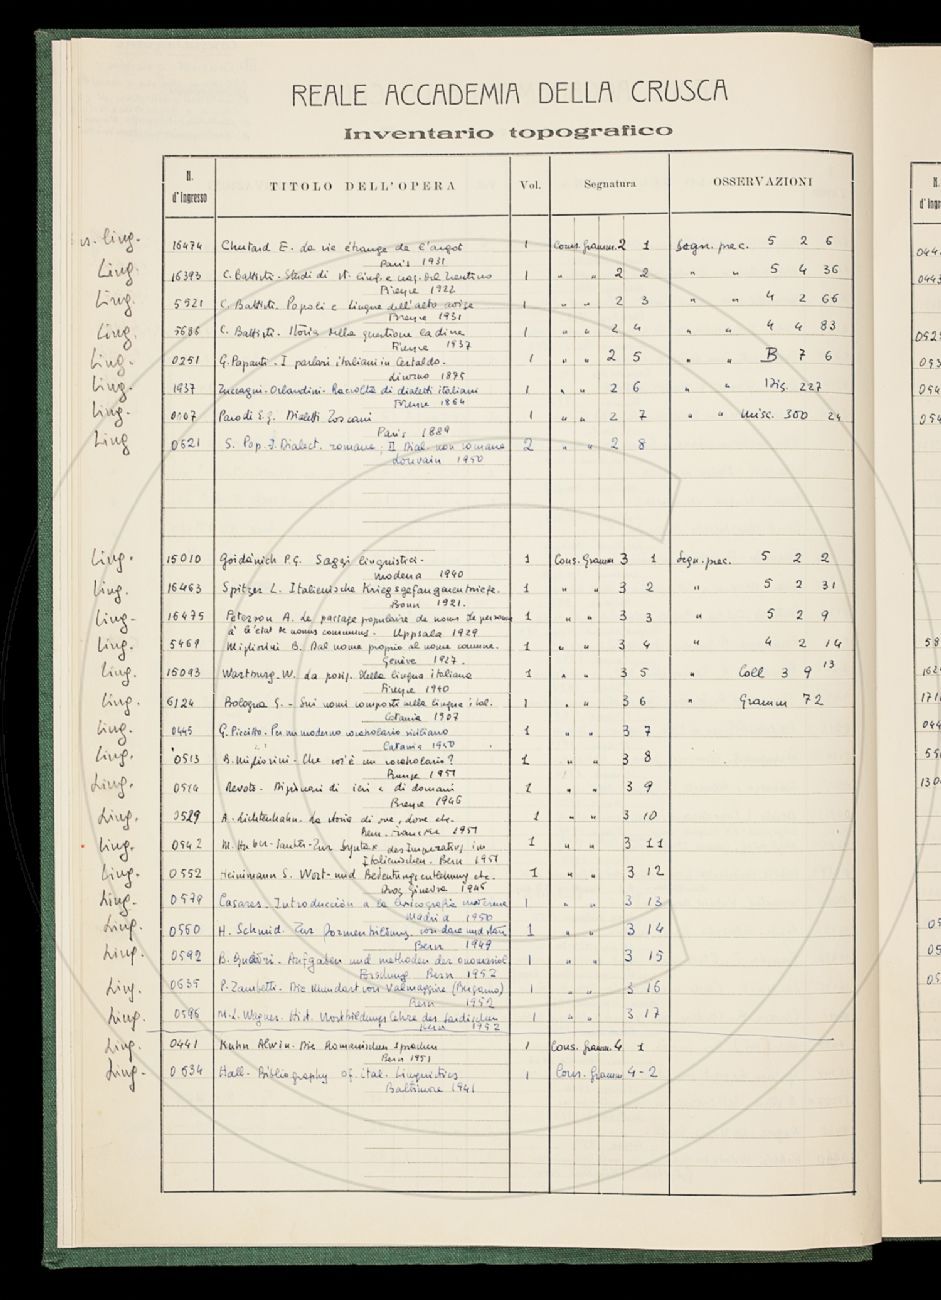 REALE ACCADEMIA DELLA CRUSCA
Inventario topografico
N. d'Ingresso TITOLO DELL'OPERA Vol. Segnatura OSSERVAZIONI
ling. 16474 E. La vie étrange de l'argot 1 Cons. Gramm. 2 1 Segn. prec. 5 2 6
Paris 1931
Ling. 16393 C. Battisti. Studi di st. ling. e naz. del Trentino 1 " " 2 2 " " 5 4 36
Firenze 1922
Ling. 5521 C. Battisti. Popoli e lingue dell'alto adige 1 " " 2 3 " " 4 2 66
Firenze 1931
Ling. 5686 C. Battisti. Storia della questione ladina 1 " " 2 4 " " 4 4 83
Firenze 1937
Ling. 0251 G. Papanti. I parlari italiani in Certaldo. 1 " " 2 5 " " B 7 6
Livorno 1875
Ling. 1937 Zuccagni-Orlandini. Raccolta di dialetti italiani 1 " " 2 6 " " Diz. 227
Firenze 1864
Ling. 0107 Parodi E.G. Dialetti Toscani 1 " " 2 7 " " Misc. 300 24
Paris 1889
Ling 0621 S. Pop. I. Dialect. romane; II Dial. non romane 2 " " 2 8
Louvain 1950
Ling. 15010 Goidànich P.G. Saggi linguistici. 1 Cons. Gramm 3 1 Segn. prec. 5 2 2
Modena 1940
Ling. 16463 Spitzer L. Italienische Kriegsgefangenenbriefe. 1 " " 3 2 " 5 2 31
Bonn 1921.
Ling. 16475 Peterson A. Le passage populaire de noms de personne 1 " " 3 3 " 5 2 9
à l'état de noms communs. Uppsala 1929
Ling. 5469 Migliorini B. Dal nome proprio al nome comune. 1 " " 3 4 " 4 2 14
Genève 1927.
Ling. 15093 Wartburg. W. La posiz. della lingua italiana 1 " " 3 5 " Coll 3 9 13
Firenze 1940
Ling. 6124 Bologna G. - Sui nomi composti nella lingua ital. 1 " " 3 6 " Gramm 72
Catania 1907
Ling. 0445 G. Piccitto. Per un moderno vocabolario siciliano 1 3 7
Catania 1950
Ling. 0513 B. Migliorini - Che cos'è un vocabolario? 1 " " 3 8
Firenze 1951
Ling. 0514 Devoto. Dizionari di ieri e di domani 1 " " 3 9
Firenze 1946
Ling. 0529 A. Lichtenhahn. La storia di ove, dove etc. 1 " " 3 10
Bern. Francke 1951
Ling. 0542 M. Huber-Sauter-Zur Syntax des Imperativs im 1 " " 3 11
Italienischen. Bern 1951
Ling. 0552 Heinimann S. Wort- und Bedeutungsentlehnung etc. 1 " " 3 12
Droz Ginevra 1945
Ling. 0579 Casares. Introducción a la lexicografía moderna 1 " " 3 13
Madrid 1950
Ling. 0560 H. Schmid. Zur Formenbildung von dare und stare 1 " " 3 14
Bern 1949
Ling. 0592 B. Quadri. Aufgaben und methoden der onomasiol 1 " " 3 15
Forschung Bern 1952
Ling. 0635 P. Zambetti. Die mundart von Valmaggiore (Bergamo) 1 " " 3 16
Bern 1952
Ling. 0596 M.L. Wagner. Hist. Wortbildungslehre des Sardischen 1 " " 3 17
Bern 1952
Ling. 0441 Kuhn Alwin - Die Romanischen Sprachen 1 Cons. Gramm. 4 1
Bern 1951
Ling. 0634 Hall - Bibliography of ital. Linguistics 1 Cons. Gramm 4-2
Baltimore 1941